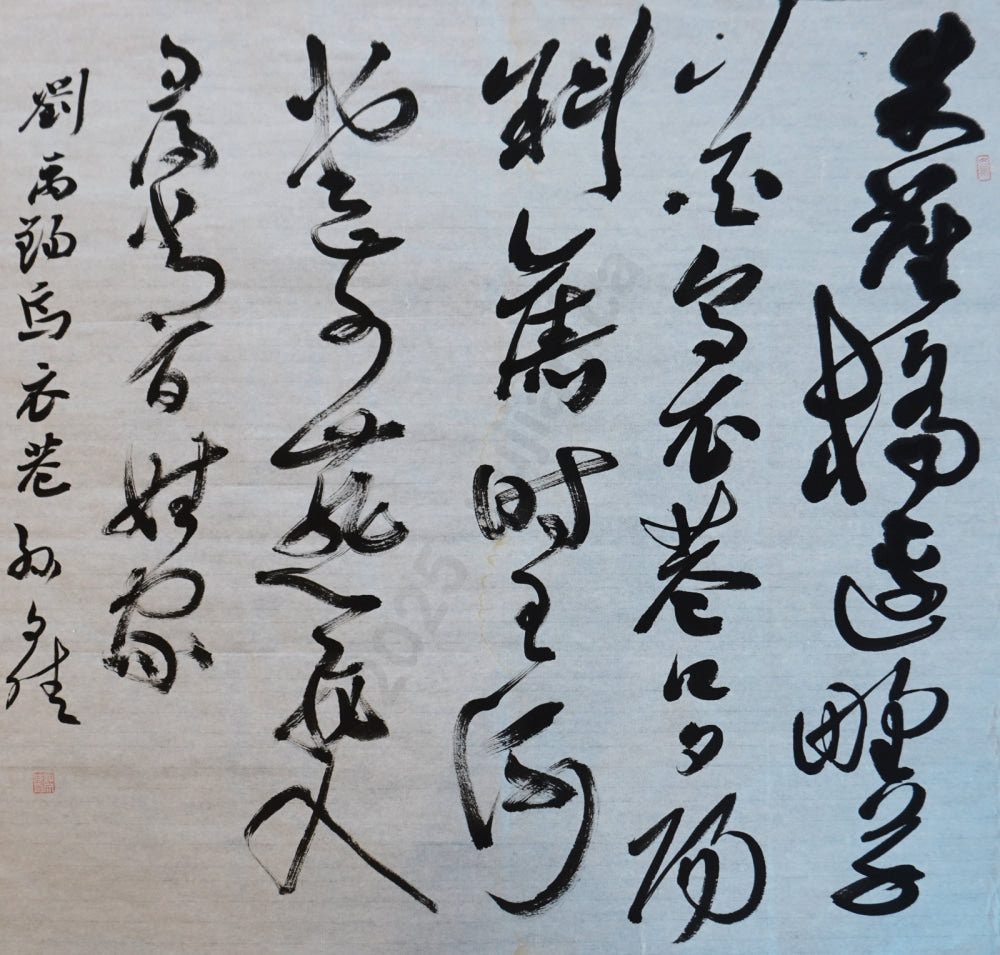 朱雀橋邊野草
花烏衣巷口夕陽
斜舊時王謝
堂前燕飛入
尋常百姓家
劉禹錫烏衣巷 孙
2025